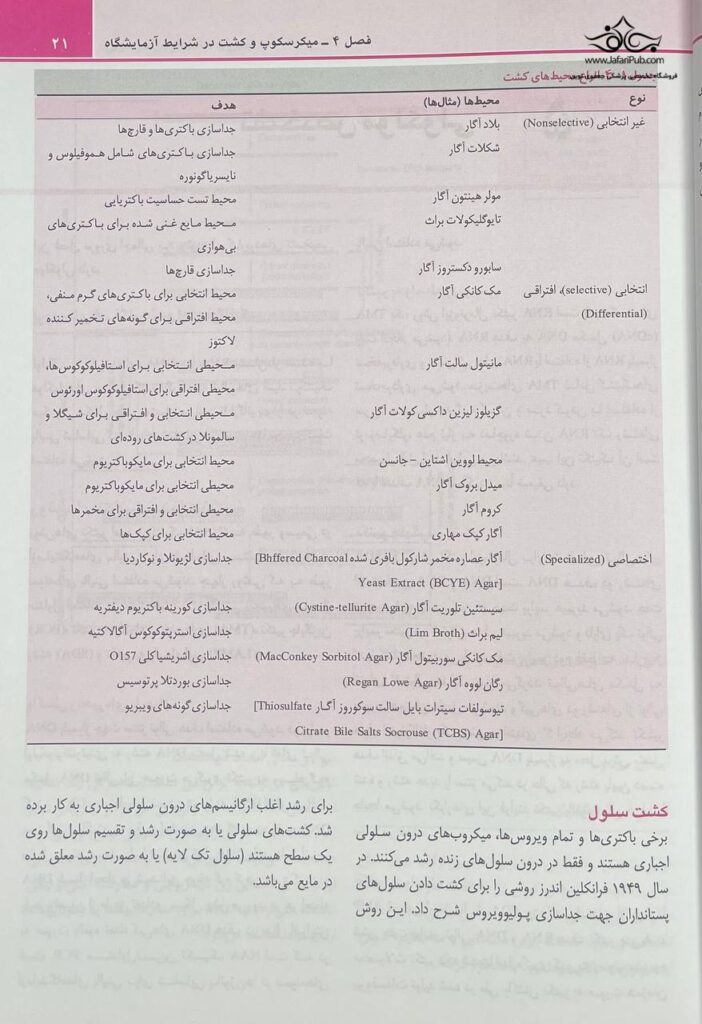 فصل ۴ ـ میکرسکوپ و کشت در شرایط آزمایشگاه ۲۱
www.JafariPub.com
محیط‌های کشت
نوع محیط‌ها (مثال‌ها) هدف
غیر انتخابی (Nonselective) بلاد آگار جداسازی باکتری‌ها و قارچ‌ها
شکلات آگار جداسازی باکتری‌های شامل هموفیلوس و
نایسریاگونوره
مولر هینتون آگار محیط تست حساسیت باکتریایی
تایوگلیکولات براث محیط مایع غنی شده برای باکتری‌های
بی‌هوازی
سابورو دکستروز آگار جداسازی قارچ‌ها
انتخابی (selective)، افتراقی مک کانکی آگار محیط انتخابی برای باکتری‌های گرم منفی،
(Differential) محیط افتراقی برای گونه‌های تخمیر کننده
لاکتوز
مانیتول سالت آگار محیطی انتخابی برای استافیلوکوکوس‌ها،
محیطی افتراقی برای استافیلوکوکوس اورئوس
گزیلوز لیزین داکسی کولات آگار محیطی انتخابی و افتراقی برای شیگلا و
سالمونلا در کشت‌های روده‌ای
محیط لووین اشتاین - جانسن محیط انتخابی برای مایکوباکتریوم
میدل بروک آگار محیطی انتخابی برای مایکوباکتریوم
کروم آگار محیطی انتخابی و افتراقی برای مخمرها
آگار کپک مهاری محیط انتخابی برای کپک‌ها
اختصاصی (Specialized) آگار عصاره مخمر شارکول بافری شده [Bhffered Charcoal جداسازی لژیونلا و نوکاردیا
Yeast Extract (BCYE) Agar]
سیستئین تلوریت آگار (Cystine-tellurite Agar) جداسازی کورینه باکتریوم دیفتریه
لیم براث (Lim Broth) جداسازی استرپتوکوکوس آگالاکتیه
مک کانکی سوربیتول آگار (MacConkey Sorbitol Agar) جداسازی اشریشیاکلی O157
رگان لووه آگار (Regan Lowe Agar) جداسازی بوردتلا پرتوسیس
تیوسولفات سیترات بایل سالت سوکوروز آگار [Thiosulfate جداسازی گونه‌های ویبریو
Citrate Bile Salts Socrouse (TCBS) Agar]
کشت سلول
برخی باکتری‌ها و تمام ویروس‌ها، میکروب‌های درون سلولی
اجباری هستند و فقط در درون سلول‌های زنده رشد می‌کنند. در
سال ۱۹۴۹ فرانکلین اندرز روشی را برای کشت دادن سلول‌های
پستانداران جهت جداسازی پولیوویروس شرح داد. این روش
برای رشد اغلب ارگانیسم‌های درون سلولی اجباری به کار برده
شد. کشت‌های سلولی یا به صورت رشد و تقسیم سلول‌ها روی
یک سطح هستند (سلول تک لایه) یا به صورت رشد معلق شده
در مایع می‌باشد.